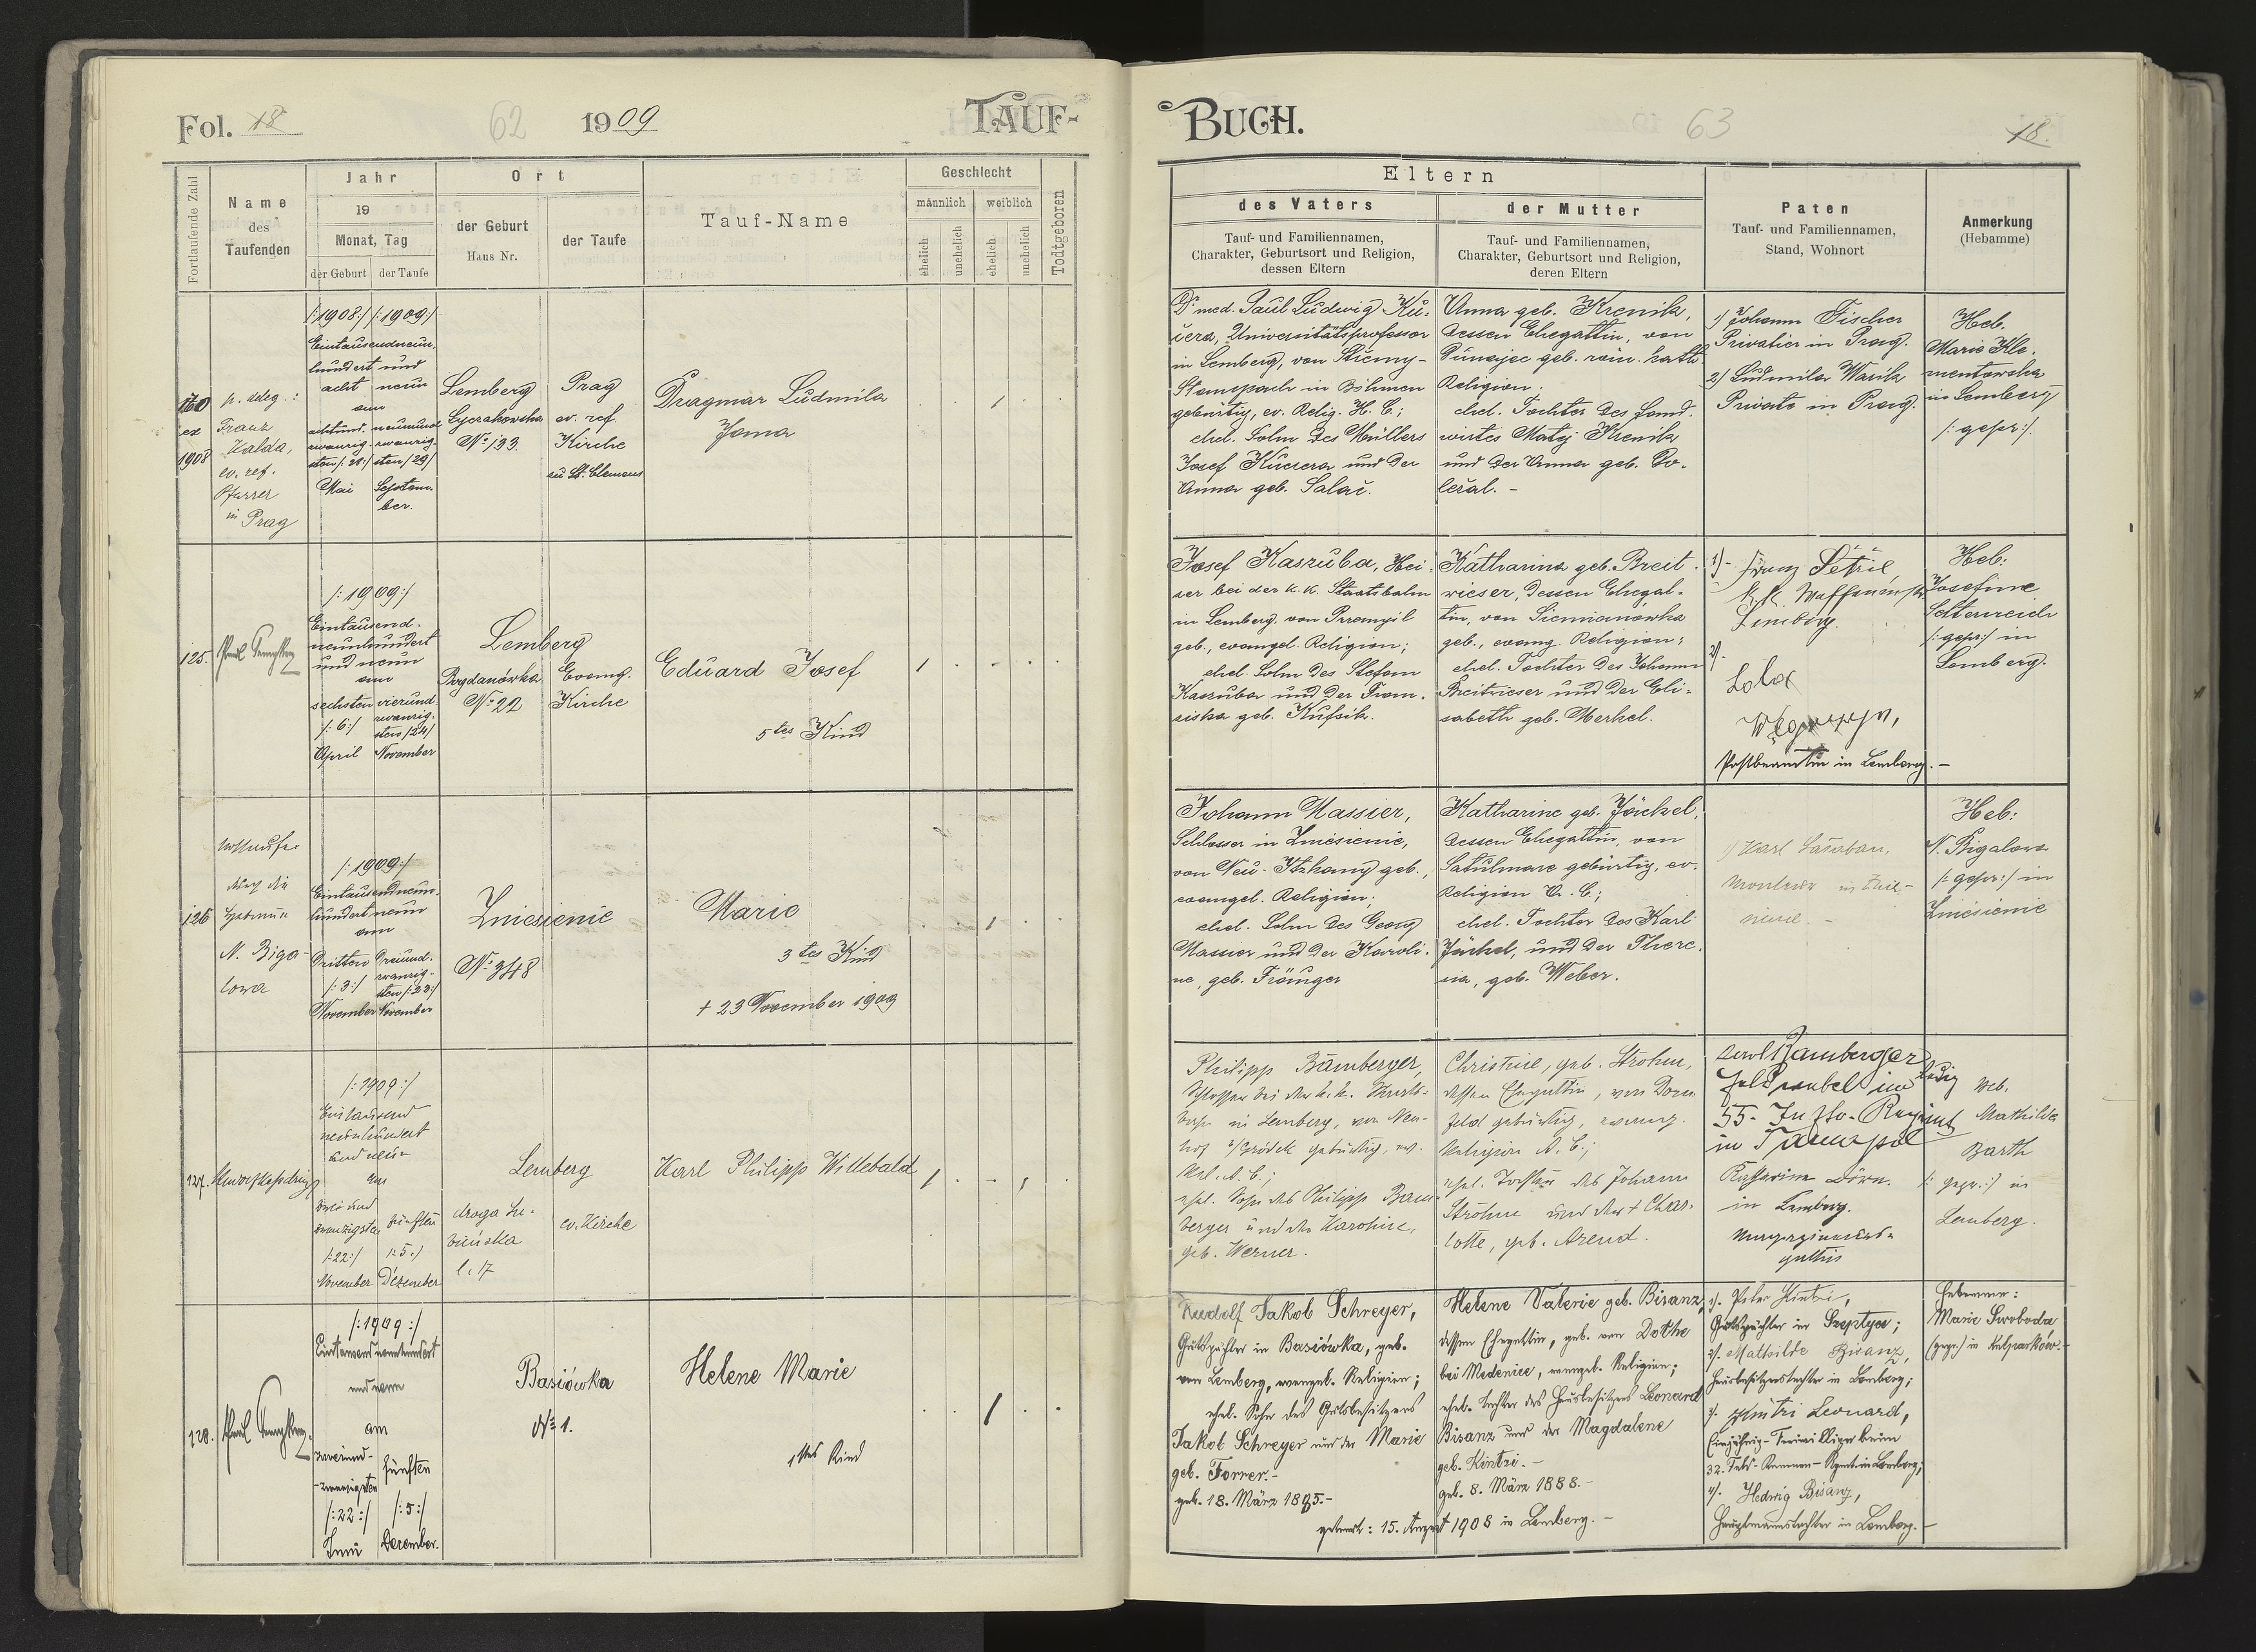 Fol. 18
62
1909
TAUF-
Fortlaufende Zahl
Name
des
Taufenden
Jahr
19
Monat, Tag
der Geburt
der Taufe
Ort
der Geburt
Haus Nr.
der Taufe
Tauf-Name
Geschlecht
männlich
weiblich
ehelich
unehelich
ehelich
unehelich
Todtgeboren
ex
1908
p. deleg.:
Franz
Kalda,
ev. ref.
Pfarrer
in Prag
/:1908:/ /:1909:/
Eintausendneun-
hundert und
acht neun
am
achtund- neunund
zwanzig- zwanzig-
sten /:28:/ sten /29/
Mai Septem-
ber.
Lemberg
Łyczakowska
No 133.
Prag
ev. ref.
Kirche
zu St. Clemens
Dragmar Ludmila
Jana
125.
/:1909:/
Eintausend-
neunhundert
und neun
am
sechsten vierund
/:6:/ zwanzig-
sten /24/
April November
Lemberg
Bogdanówka
No 22
Evang.
Kirche
Eduard Josef
5tes Kind
126
Nottaufe
durch die
Hebamme
N. Biga-
lowa
/:1909:/
Eintausendneun-
hundert neun
am
Dritten Dreiund-
/:3:/ zwanzig-
sten /:23:/
November November
Zniesienie
No 948
Marie
3tes Kind
+ 23 November 1909
127.
/:1909:/
Eintausend
neunhundert
und neun
am
zwei und
zwanzigsten fünften
/:22:/ /:5:/
November Dezember
Lemberg
droga Lu-
bieńska
l. 17
ev. Kirche
Karl Philipp Willebald
128.
/:1909:/
Eintausend neunhundert
und neun
am
zweiund-
zwanzigsten fünften
/:22:/ /:5:/
Juni Dezember.
Basiówka
No 1.
Helene Marie
1stes Kind
BUCH.
63
18.
Eltern
des Vaters
Tauf- und Familiennamen,
Charakter, Geburtsort und Religion,
dessen Eltern
der Mutter
Tauf- und Familiennamen,
Charakter, Geburtsort und Religion,
deren Eltern
Paten
Tauf- und Familiennamen,
Stand, Wohnort
Anmerkung
(Hebamme)
Dr med. Paul Ludwig Ku-
čera, Universitätsprofessor
in Lemberg, von
in Böhmen
gebürtig, ev. Relig. H. C.;
ehel. Sohn des Müllers
Josef Kučera und der
Anna geb. Salač.
Anna geb. Krenik,
dessen Ehegattin, von
Dunajec geb. röm. kath.
Religion.
ehel. Tochter des Land-
wirtes Matej Krenik
und der Anna geb. Do-
ležal. -
1) Johann Fischer
Privatier in Prag.
2) Ludmila Warik
Private in Prag.
Heb.
Marie Kle-
mentowska
in Lemberg
/: gepr:/.
Josef Kaszuba, Hei-
zer bei der k.k. Staatsbahn
in Lemberg, von Przemyśl
geb., evangel. Religion;
ehel. Sohn des Stefan
Kaszuba und der Fran-
ziska geb. Kufsik.
Katharina geb. Breit-
wieser, dessen Ehegat-
tin, von Siemianówka
geb., evang. Religion;
ehel. Tochter des Johann
Breitwieser und der Eli-
sabeth geb. Merkel.
1)- Franz Petřil
k.k. Waffenmstr
Lemberg.
2).
Lola
Postbeamtin in Lemberg. -
Heb:
Josefine
/:gepr:/ in
Lemberg.
Johann Massier,
Schlosser in Zniesienie,
von Neu-Itzkany geb.,
evangel. Religion;
ehel. Sohn des Georg
Massier und der Karoli-
ne, geb.
Katharine geb. Jäckel,
dessen Ehegattin, von
Satulmare gebürtig, ev.
Religion A. C.;
ehel. Tochter des Karl
Jäckel, und der There-
sia, geb. Weber.
1) Karl
Monteur in Znie-
sienie -
Heb:
N. Bigalowa
/: gepr:/ in
Zniesienie
Philipp Bamberger,
Schlosser bei der k.k. Staats-
bahn in Lemberg, von Neu-
hof b/Gródek gebürtig, ev.
Rel. A. C.;
ehel. Sohn des Philipp Bam-
berger und der Karoline,
geb. Werner.
Christine, geb. Strohm,
dessen Ehegattin, von Dorn-
feld gebürtig, evang.
Religion A. C.;
ehel. Tochter des Johann
Strohm und der + Char-
lotte, geb. Arend.
Karl Bamberger
Feldwebel im
55- Inftr.-Regimt
in Tarnopol
Katharina Dörn.
in Lemberg.
gattin
Heb.
Mathilde
Barth
/: gepr.:/ in
Lemberg.
Rudolf Jakob Schreyer,
Gutspächter in Basiówka, geb.
von Lemberg, evangel. Religion;
ehel. Sohn des Gutsbesitzers
Jakob Schreyer und der Marie
geb. Forrer.-
geb. 18. März 1885.-
Helene Valerie geb. Bisanz,
dessen Ehegattin, geb. von Dothe
bei Medenice, evangel. Religion;
ehel. Tochter des Hausbesitzers Leonard
Bisanz und der Magdalene
geb. Kintzi.-
geb. 8. März 1888.-
getraut: 15. August 1908 in Lemberg. -
1). Peter Kintzi,
Gutspächter in Szeptyce;
2). Mathilde Bisanz,
Hausbesitzerstochter in Lemberg;
3). Kintzi Leonard,
Einjährig-Freiwilliger beim
32. Feld-Kanonen-Rgmt. in Lemberg;
4). Hedwig Bisanz,
Hauptmannstochter in Lemberg.-
Hebamme:
Marie Swoboda
(gepr.) in Kulparków.-